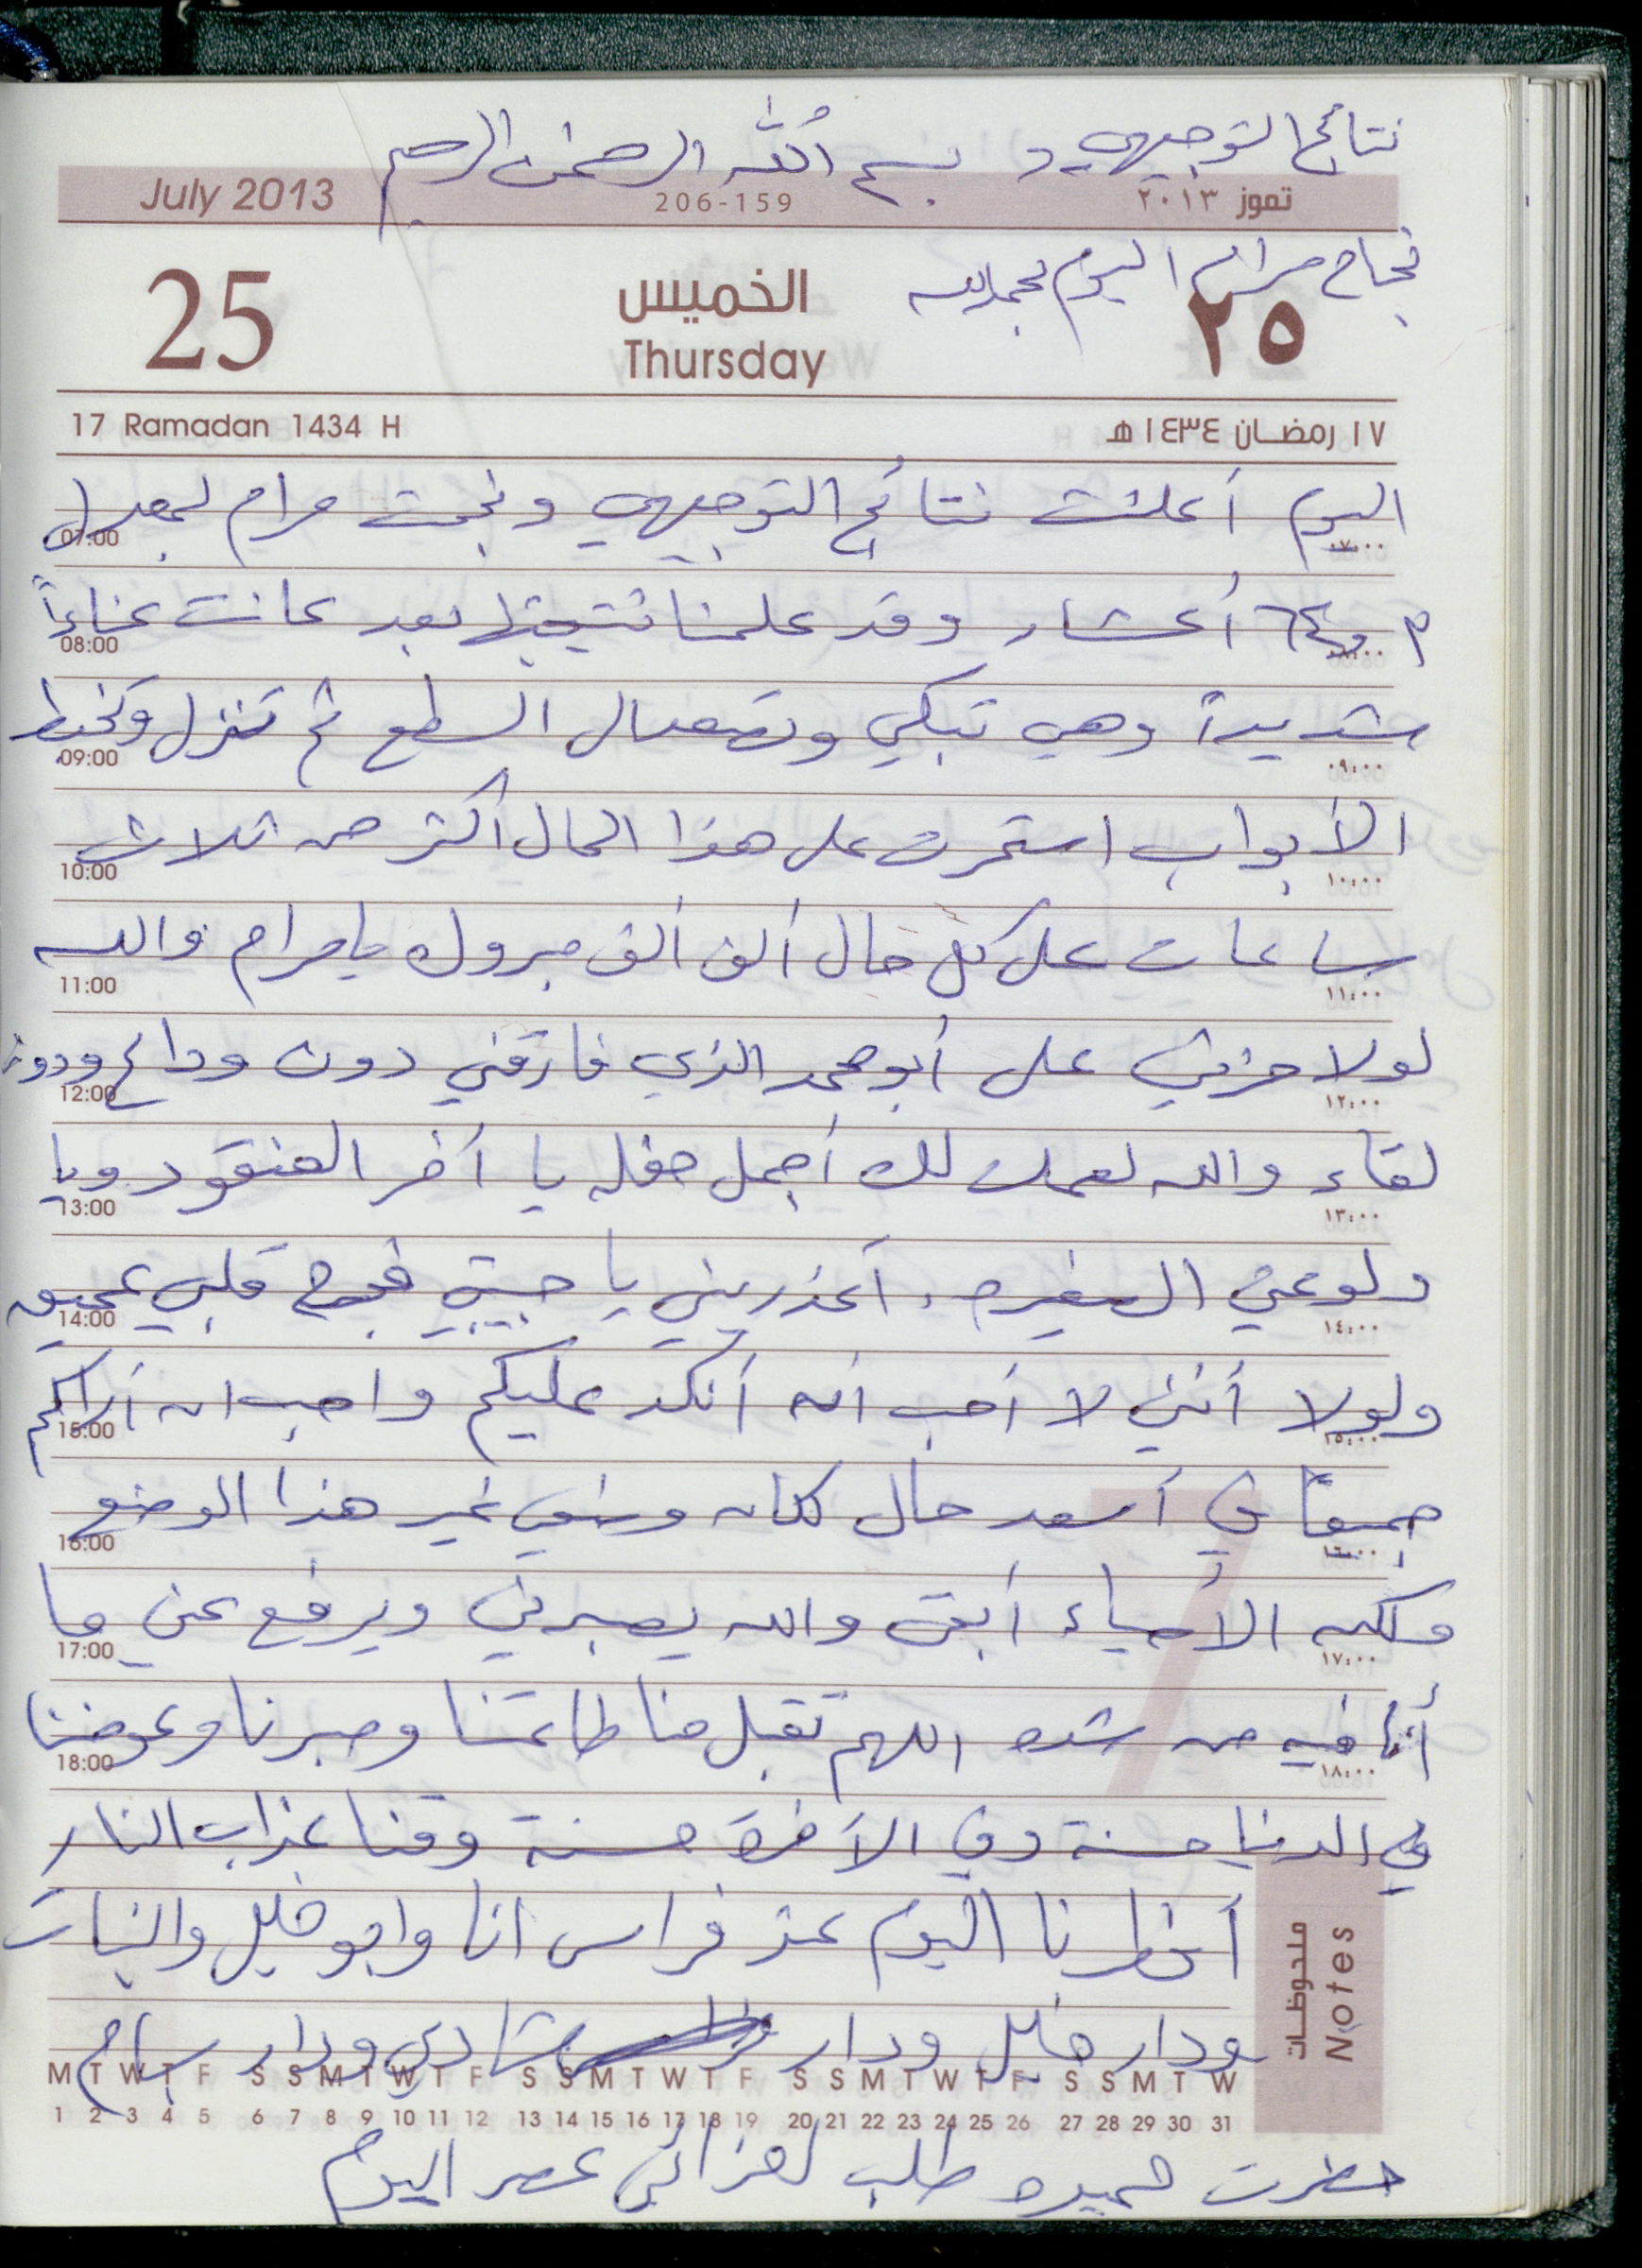 نتائج التوجيهي و بسم الله الرحمن الرحيم
July 2013 206-159 تموز ٢٠١٣
نجاح مرام اليوم بحمد الله
25 الخميس ٢٥
Thursday
17 Ramadan 1434 H ١٧ رمضان ١٤٣٤ هـ
اليوم أعلنت نتائج التوجيهي ونجحت مرام بمعدل
07:00 ٠٧:٠٠
أعشار وقد علمنا نتيجتها بعد عانت عناءاً
08:00 ٠٨:٠٠
شديداً وهي تبكي وتصعد ال السطح ثم تنزل وتخبط
09:00 ٠٩:٠٠
الأبواب استمرت على هذا الحال أكثر من ثلاث
10:00 ١٠:٠٠
ساعات على كل حال ألف ألف مبروك يا مرام والله
11:00 ١١:٠٠
لولا حزني على أبو محمد الذي فارقني دون وداع ودون
12:00 ١٢:٠٠
لقاء والله لعملت لك أجمل حفله يا آخر العنقود ويا
13:00 ١٣:٠٠
دلوعتي الصغيره، أعذريني يا حبيبتي فجرح قلبي عميق
14:00 ١٤:٠٠
ولولا أنني لا أحب أن أنكد عليكم واحب ان أراكم
15:00 ١٥:٠٠
جميعاً في أسعد حال لكان وضعي غير هذا الوضع
16:00 ١٦:٠٠
ولكن الأحياء أبقى والله يصبرني ويرفع عني ما
17:00 ١٧:٠٠
أنا فيه من شده اللهم تقبل منا طاعتنا وصبرنا وعوضنا
18:00 ١٨:٠٠
في الدنيا حسنة وفي الآخرة حسنة وقنا عذاب النار
أفطرنا اليوم عند فراس انا وابو خليل والبنات
ملحوظات
Notes
ودار خليل ودار شادي ودار سامح
M T W T F S S M T W T F S S M T W T F S S M T W T F S S M T W
1 2 3 4 5 6 7 8 9 10 11 12 13 14 15 16 17 18 19 20 21 22 23 24 25 26 27 28 29 30 31
حظرت حميده طلب لعزائي عصر اليوم